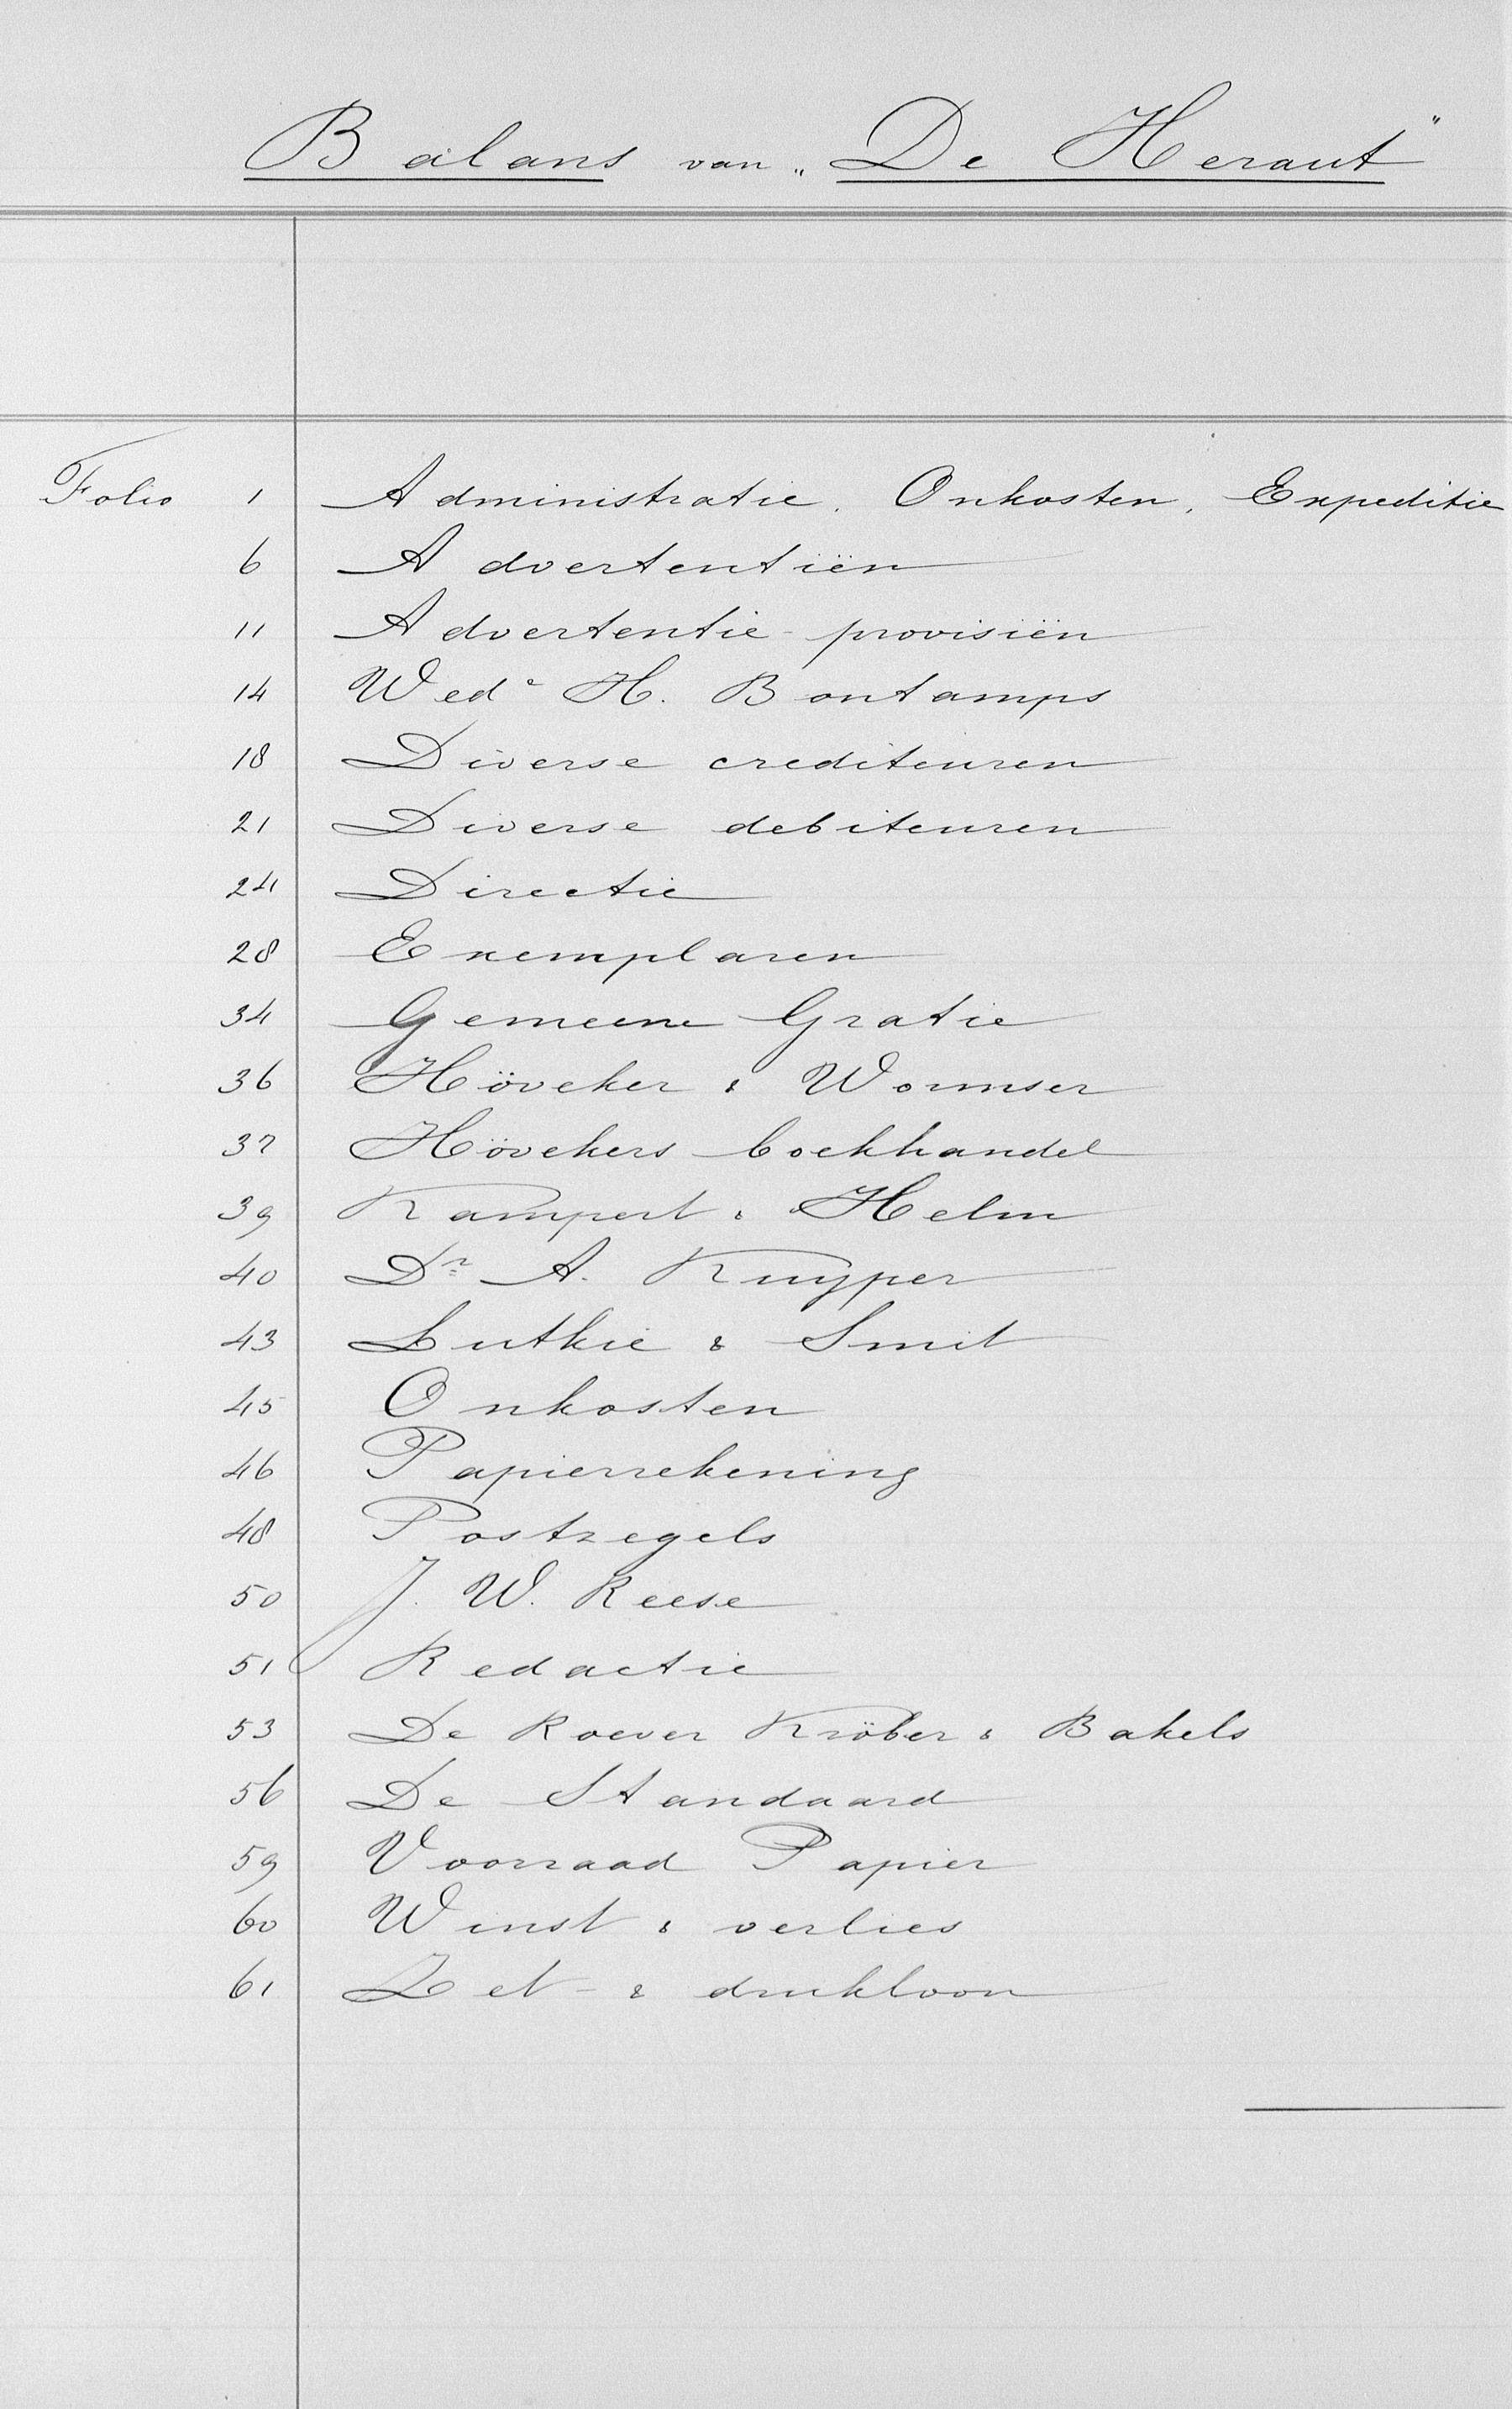 Balans van „De Heraut"
Folio 1 Administratie. Onkosten, Expeditie
6 Advertentiën
11 Advertentie-provisiën
14 Wede H. Bontamps
18 Diverse crediteuren
21 Diverse debiteuren
24 Directie
28 Exemplaren
34 Gemeene Gratie
36 Höveker & Wormser
37 Hövekers boekhandel
39 Kampert & Helm
40 Dr A. Kuyper
43 Lutkie & Smit
45 Onkosten
46 Papierrekening
48 Postzegels
50 J. W. Reese
51 Redactie
53 De Roever Kröber & Bakels
56 De Standaard
59 Voorraad Papier
60 Winst & verlies
61 Zet- & drukloon